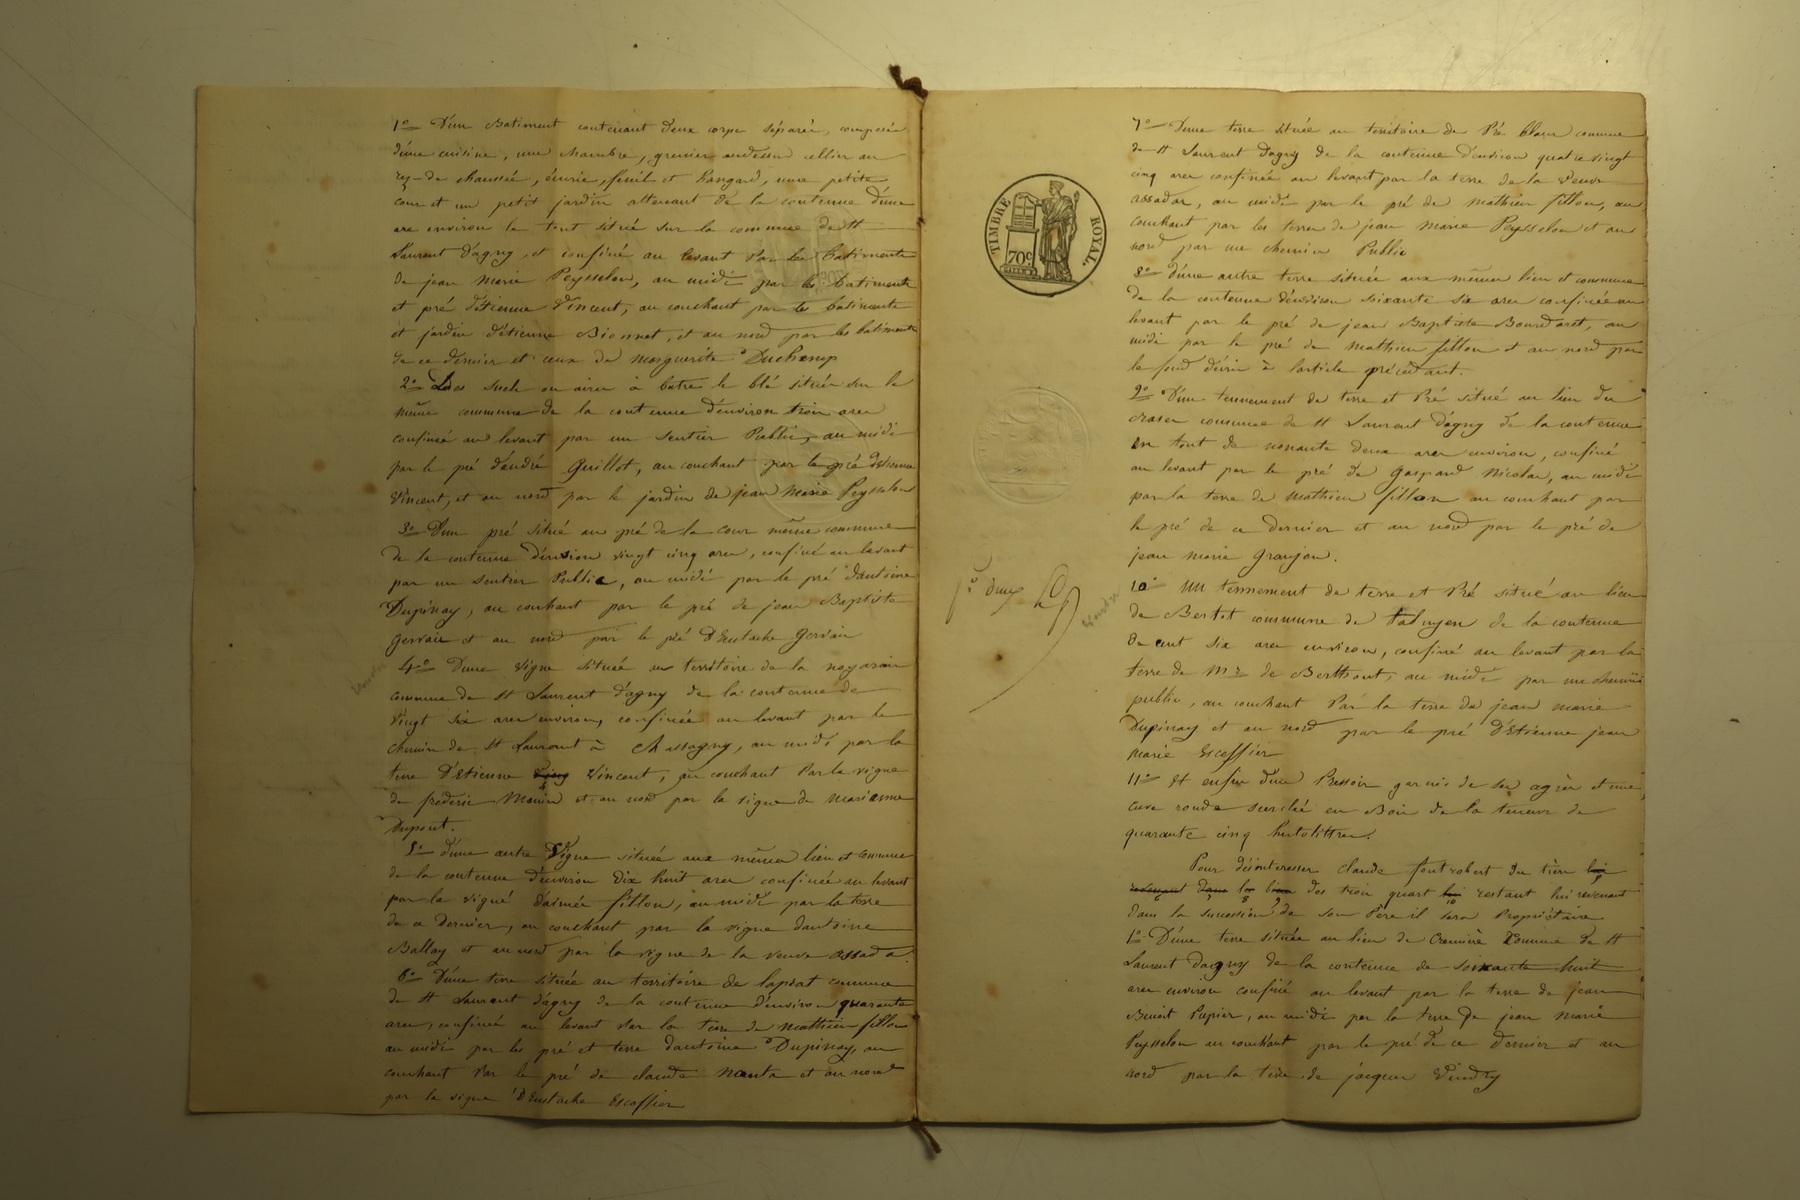 1o D'un Batiment contenant deux corps séparés, composés
d'une cuisine, une chambre, grenier audessu cellier au
rez-de chaussée, écurie, fenil et hangard, une petite
cour et un petit jardin attenant de la contenue d'une
are environ le tout situé sur la commune de St
Laurent d'agny et confiné au levant Par les batiments
de jean Marie Peysselon, au midi par les batiments
et pré d'étienne Vincent, au couchant par les batiments
et jardin d'étienne Bionnet, et au nord par les batiments
de ce dernier et ceux de marguerite Duchamp
2o Des suels ou aires à batre le blé située sur la
même commune de la contenue d'environ trois ares
confinés au levant par un sentier Public, au midi
par le pré d'andré Guillot, au couchant par le pré d'étienne
Vincent, et au nord par le jardin de jean Marie Peysselon
3o D'un pré situé au pré de la cour même commune
de la contenue d'environ vingt cinq ares, confiné au levant
par un sentier Public, au midi par le pré d'antoine
Dupinay, au couchant par le pré de jean Baptiste
Gervais et au nord par le pré d'Eustache Gervais
4o D'une vigne située au territoire de la noyeraie
commune de St Laurent d'agny de la contenue de
vingt six ares environ, confinée au levant par le
chemin de St Laurent à Chassagny, au midi par la
terre d'Etienne Vincent, au couchant Par la vigne
de frederic Monin et au nord par la vigne de marianne
Dupont.
5o d'une autre Vigne située aux mêmes lieu et commune
de la contenue d'environ dix huit ares confinée au levant
par la vigne d'aimée fillon, au midi par la terre
de ce Dernier, au couchant par la vigne d'antoine
Ballay et au nord par la vigne de la veuve assada.
6o D'une terre située au territoire de laprat commune
de St Laurent d'agny de la contenue d'environ quarante
ares, confinée au levant Par la terre de mathieu fillon
au midi par les pré et terre d'antoine Dupinay, au
couchant Par le pré de claude Manta et au nord
par la vigne d'Eustache Escoffier
TIMBRE ROYAL.
70c
fo deux
7o D'une terre située au territoire de Pré blanc commune
de St Laurent d'agny de la contenue d'environ quatre vingt
cinq ares confinée au levant par la terre de la Veuve
assadas, au midi par le pré de mathieu fillon, au
couchant par les terres de jean marie Peysselon et au
nord par un chemin Public
8o d'une autre terre située aux mêmes lieu et commune
de la contenue d'environ soixante six ares confinée au
levant par le pré de jean Baptiste Bourdaret, au
midi par le pré de mathieu fillon et au nord par
le fond décrit à l'article précédant.
9o D'un tennement de terre et Pré situé au lieu du
craser commune de St Laurent d'agny de la contenue
en tout de nonante deux ares environ, confiné
au levant par le pré de Gaspard Nicolas, au midi
par la terre de Mathieu fillon au couchant par
le pré de ce Dernier et au nord par le pré de
jean marie Granjon.
10o Un tennement de terre et Pré situé au lieu
de Bertet commune de Taluyers de la contenue
de cent six ares environ, confiné au levant par la
terre de Mr de Berthout, au midi par un chemin
public, au couchant Par la terre de jean marie
Dupinay et au nord par le pré d'Etienne jean
marie Escoffier
11o Et enfin d'un Pressoir garnis de ses agrès et une
cuve ronde serclée en Bois de la teneur de
quarante cinq hectolittres.
Pour désinteresser claude fontrobert du tiers
des trois quart restant lui revenant
dans la succession de son Père il sera Propriétaire
1o D'une terre située au lieu de Cremière commune de St
Laurent D'agny de la contenue de soixante huit
ares environ confiné au levant par la terre de jean
Benoit Pupier, au midi par la terre de jean marie
Peysselon au couchant par le pré de ce Dernier et au
nord par la terre de jacques Vindry